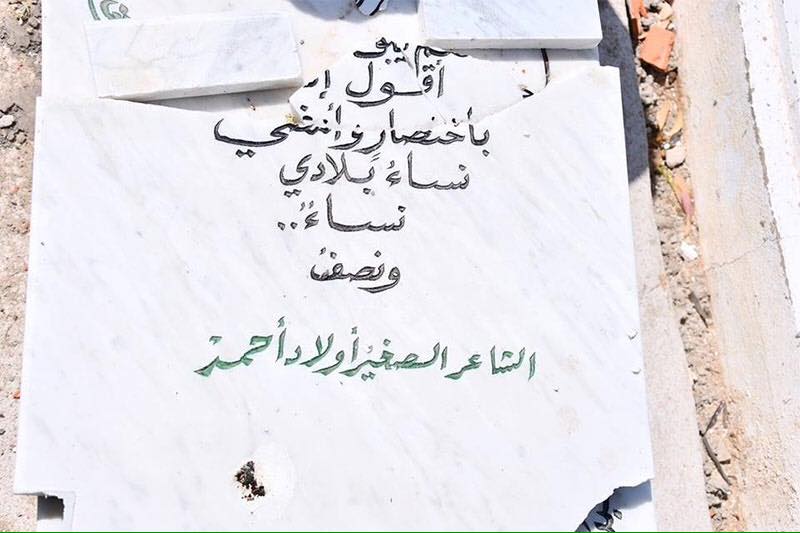 يبق
أقول
بأختصارٍ وأنتهي
نساءُ بلادي
نساءُ..
ونصفُ
الشاعر الصغير أولاد أحمد